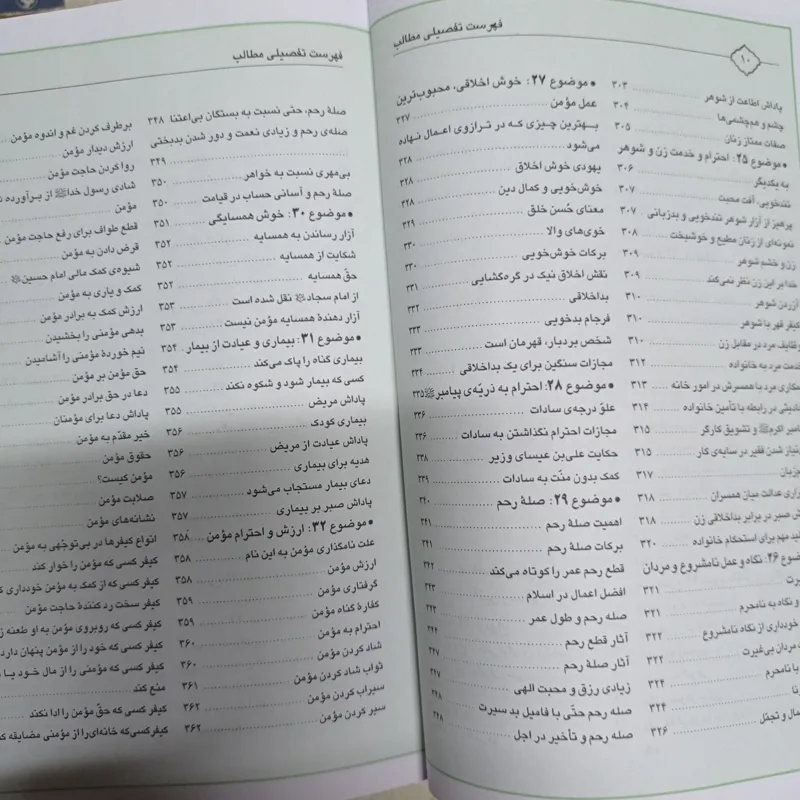 ۱۰
فهرست تفصیلی مطالب
پاداش اطاعت از شوهر ۳۰۳
چشم و هم‌چشمی‌ها ۳۰۴
صفات ممتاز زنان ۳۰۵
• موضوع ۲۵: احترام و خدمت زن و شوهر
به یکدیگر ۳۰۶
تندخویی، آفت محبت ۳۰۷
پرهیز از آزار شوهر تندخویی و بدزبانی ۳۰۷
نمونه‌ای از زنان مطیع و خوشبخت ۳۰۸
زن و خشم شوهر ۳۰۹
خدا بر این زن نظر نمی‌کند ۳۰۹
آزردن شوهر ۳۱۰
کیفر قهر با شوهر ۳۱۰
وظایف مرد در مقابل زن ۳۱۰
خدمت مرد به خانواده ۳۱۲
همکاری مرد با همسرش در امور خانه ۳۱۳
در رابطه با تأمین خانواده ۳۱۴
اکرم ﷺ و تشویق کارگر ۳۱۵
نیاز شدن فقیر در سایه‌ی کار ۳۱۵
۳۱۷
عدالت میان همسران ۳۱۸
صبر در برابر بداخلاقی زن ۳۱۸
مهم برای استحکام خانواده ۳۲۰
۲۶: نگاه و عمل نامشروع و مردان
۳۲۱
و نگاه به نامحرم ۳۲۱
خودداری از نگاه نامشروع ۳۲۲
مردان بی‌غیرت ۳۲۲
با نامحرم ۳۲۴
۳۲۴
و تجمّل ۳۲۶
• موضوع ۲۷: خوش اخلاقی، محبوب‌ترین
عمل مؤمن ۳۲۷
بهترین چیزی که در ترازوی اعمال نهاده
می‌شود ۳۲۸
یهودی خوش اخلاق ۳۲۸
خوش‌خویی و کمال دین ۳۲۸
معنای حُسن خلق ۳۲۹
خوی‌های والا ۳۳۰
برکات خوش‌خویی ۳۳۰
نقش اخلاق نیک در گره‌گشایی ۳۳۱
بداخلاقی ۳۳۲
فرجام بدخویی ۳۳۳
شخص بردبار، قهرمان است ۳۳۳
مجازات سنگین برای یک بداخلاقی ۳۳۴
• موضوع ۲۸: احترام به ذریّه‌ی پیامبر ﷺ ۳۳۵
علوّ درجه‌ی سادات ۳۳۶
مجازات احترام نگذاشتن به سادات ۳۳۶
حکایت علی‌بن عیسای وزیر ۳۳۸
کمک بدون منّت به سادات ۳۳۹
• موضوع ۲۹: صلهٔ رحم ۳۴۰
اهمیت صلهٔ رحم ۳۴۱
برکات صلهٔ رحم ۳۴۱
قطع رحم عمر را کوتاه می‌کند ۳۴۲
افضل اعمال در اسلام ۳۴۳
صله رحم و طول عمر ۳۴۴
آثار قطع رحم ۳۴۴
آثار صلهٔ رحم ۳۴۷
زیادی رزق و محبت الهی ۳۴۷
صله رحم حتّی با فامیل بد سیرت ۳۴۸
صله رحم و تأخیر در اجل ۳۴۸
فهرست تفصیلی مطالب
صلهٔ رحم، حتی نسبت به بستگان بی‌اعتنا ۳۴۸
صله‌ی رحم و زیادی نعمت و دور شدن بدبختی
۳۴۹
بی‌مهری نسبت به خواهر ۳۵۰
صلهٔ رحم و آسانی حساب در قیامت ۳۵۰
• موضوع ۳۰: خوش همسایگی ۳۵۱
آزار رساندن به همسایه ۳۵۲
شکایت از همسایه ۳۵۲
حقّ همسایه ۳۵۲
از امام سجاد نقل شده است ۳۵۳
آزار دهندهٔ همسایه مؤمن نیست ۳۵۳
• موضوع ۳۱: بیماری و عیادت از بیمار ۳۵۴
بیماری گناه را پاک می‌کند ۳۵۴
کسی که بیمار شود و شکوه نکند ۳۵۵
پاداش مریض ۳۵۵
بیماری کودک ۳۵۶
پاداش عیادت از مریض ۳۵۶
هدیه برای بیماری ۳۵۶
دعای بیمار مستجاب می‌شود ۳۵۷
پاداش صبر بر بیماری ۳۵۷
• موضوع ۳۲: ارزش و احترام مؤمن ۳۵۸
علت نامگذاری مؤمن به این نام ۳۵۸
ارزش مؤمن ۳۵۸
گرفتاری مؤمن ۳۵۹
کفارهٔ گناه مؤمن ۳۵۹
احترام به مؤمن ۳۶۰
شاد کردن مؤمن ۳۶۰
ثواب شاد کردن مؤمن ۳۶۱
سیراب کردن مؤمن ۳۶۲
سیر کردن مؤمن ۳۶۲
برطرف کردن غم و اندوه مؤمن
ارزش دیدار مؤمن
روا کردن حاجت مؤمن
شادی رسول خدا ﷺ از برآورده
مؤمن
قطع طواف برای رفع حاجت مؤمن
قرض دادن به مؤمن
شیوه‌ی کمک مالی امام حسین
کمک و یاری به مؤمن
ارزش کمک به برادر مؤمن
بدهی مؤمنی را بخشیدن
نیم خوردهٔ مؤمنی را آشامیدن
حق مؤمن بر مؤمن
دعا در حق برادر مؤمن
پاداش دعا برای مؤمنان
خیر مقدّم به مؤمن
حقوق مؤمن
مؤمن کیست؟
صلابت مؤمن
نشانه‌های مؤمن
انواع کیفرها در بی‌توجّهی به مؤمن
کیفر کسی که مؤمن را خوار کند
کیفر کسی که از کمک به مؤمن خودداری
کیفر سخت رد کنندهٔ حاجت مؤمن
کیفر کسی که روبروی مؤمن به او طعنه
کیفر کسی که خود را از مؤمن پنهان دارد
کیفر کسی که مؤمنی را از مال خود
منع کند
کیفر کسی که حقّ مؤمن را ادا نکند
کیفر کسی که خانه‌ای را از مؤمنی مضایقه